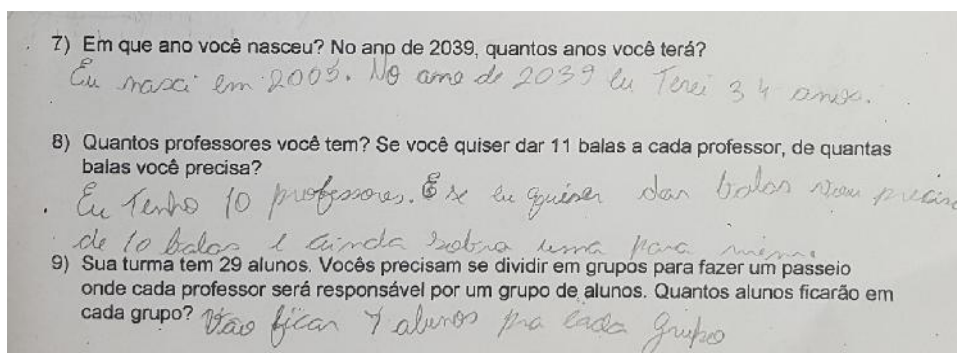 7) Em que ano você nasceu? No ano de 2039, quantos anos você terá?
Eu nasci em 2005. No ano de 2039 eu Terei 34 anos.
8) Quantos professores você tem? Se você quiser dar 11 balas a cada professor, de quantas
balas você precisa?
Eu Tenho 10 professores. E se eu quiser dar balas vou precisa
de 10 balas e ainda sobra uma para mim.
9) Sua turma tem 29 alunos. Vocês precisam se dividir em grupos para fazer um passeio
onde cada professor será responsável por um grupo de alunos. Quantos alunos ficarão em
cada grupo? Vão ficar 7 alunos pra cada grupo